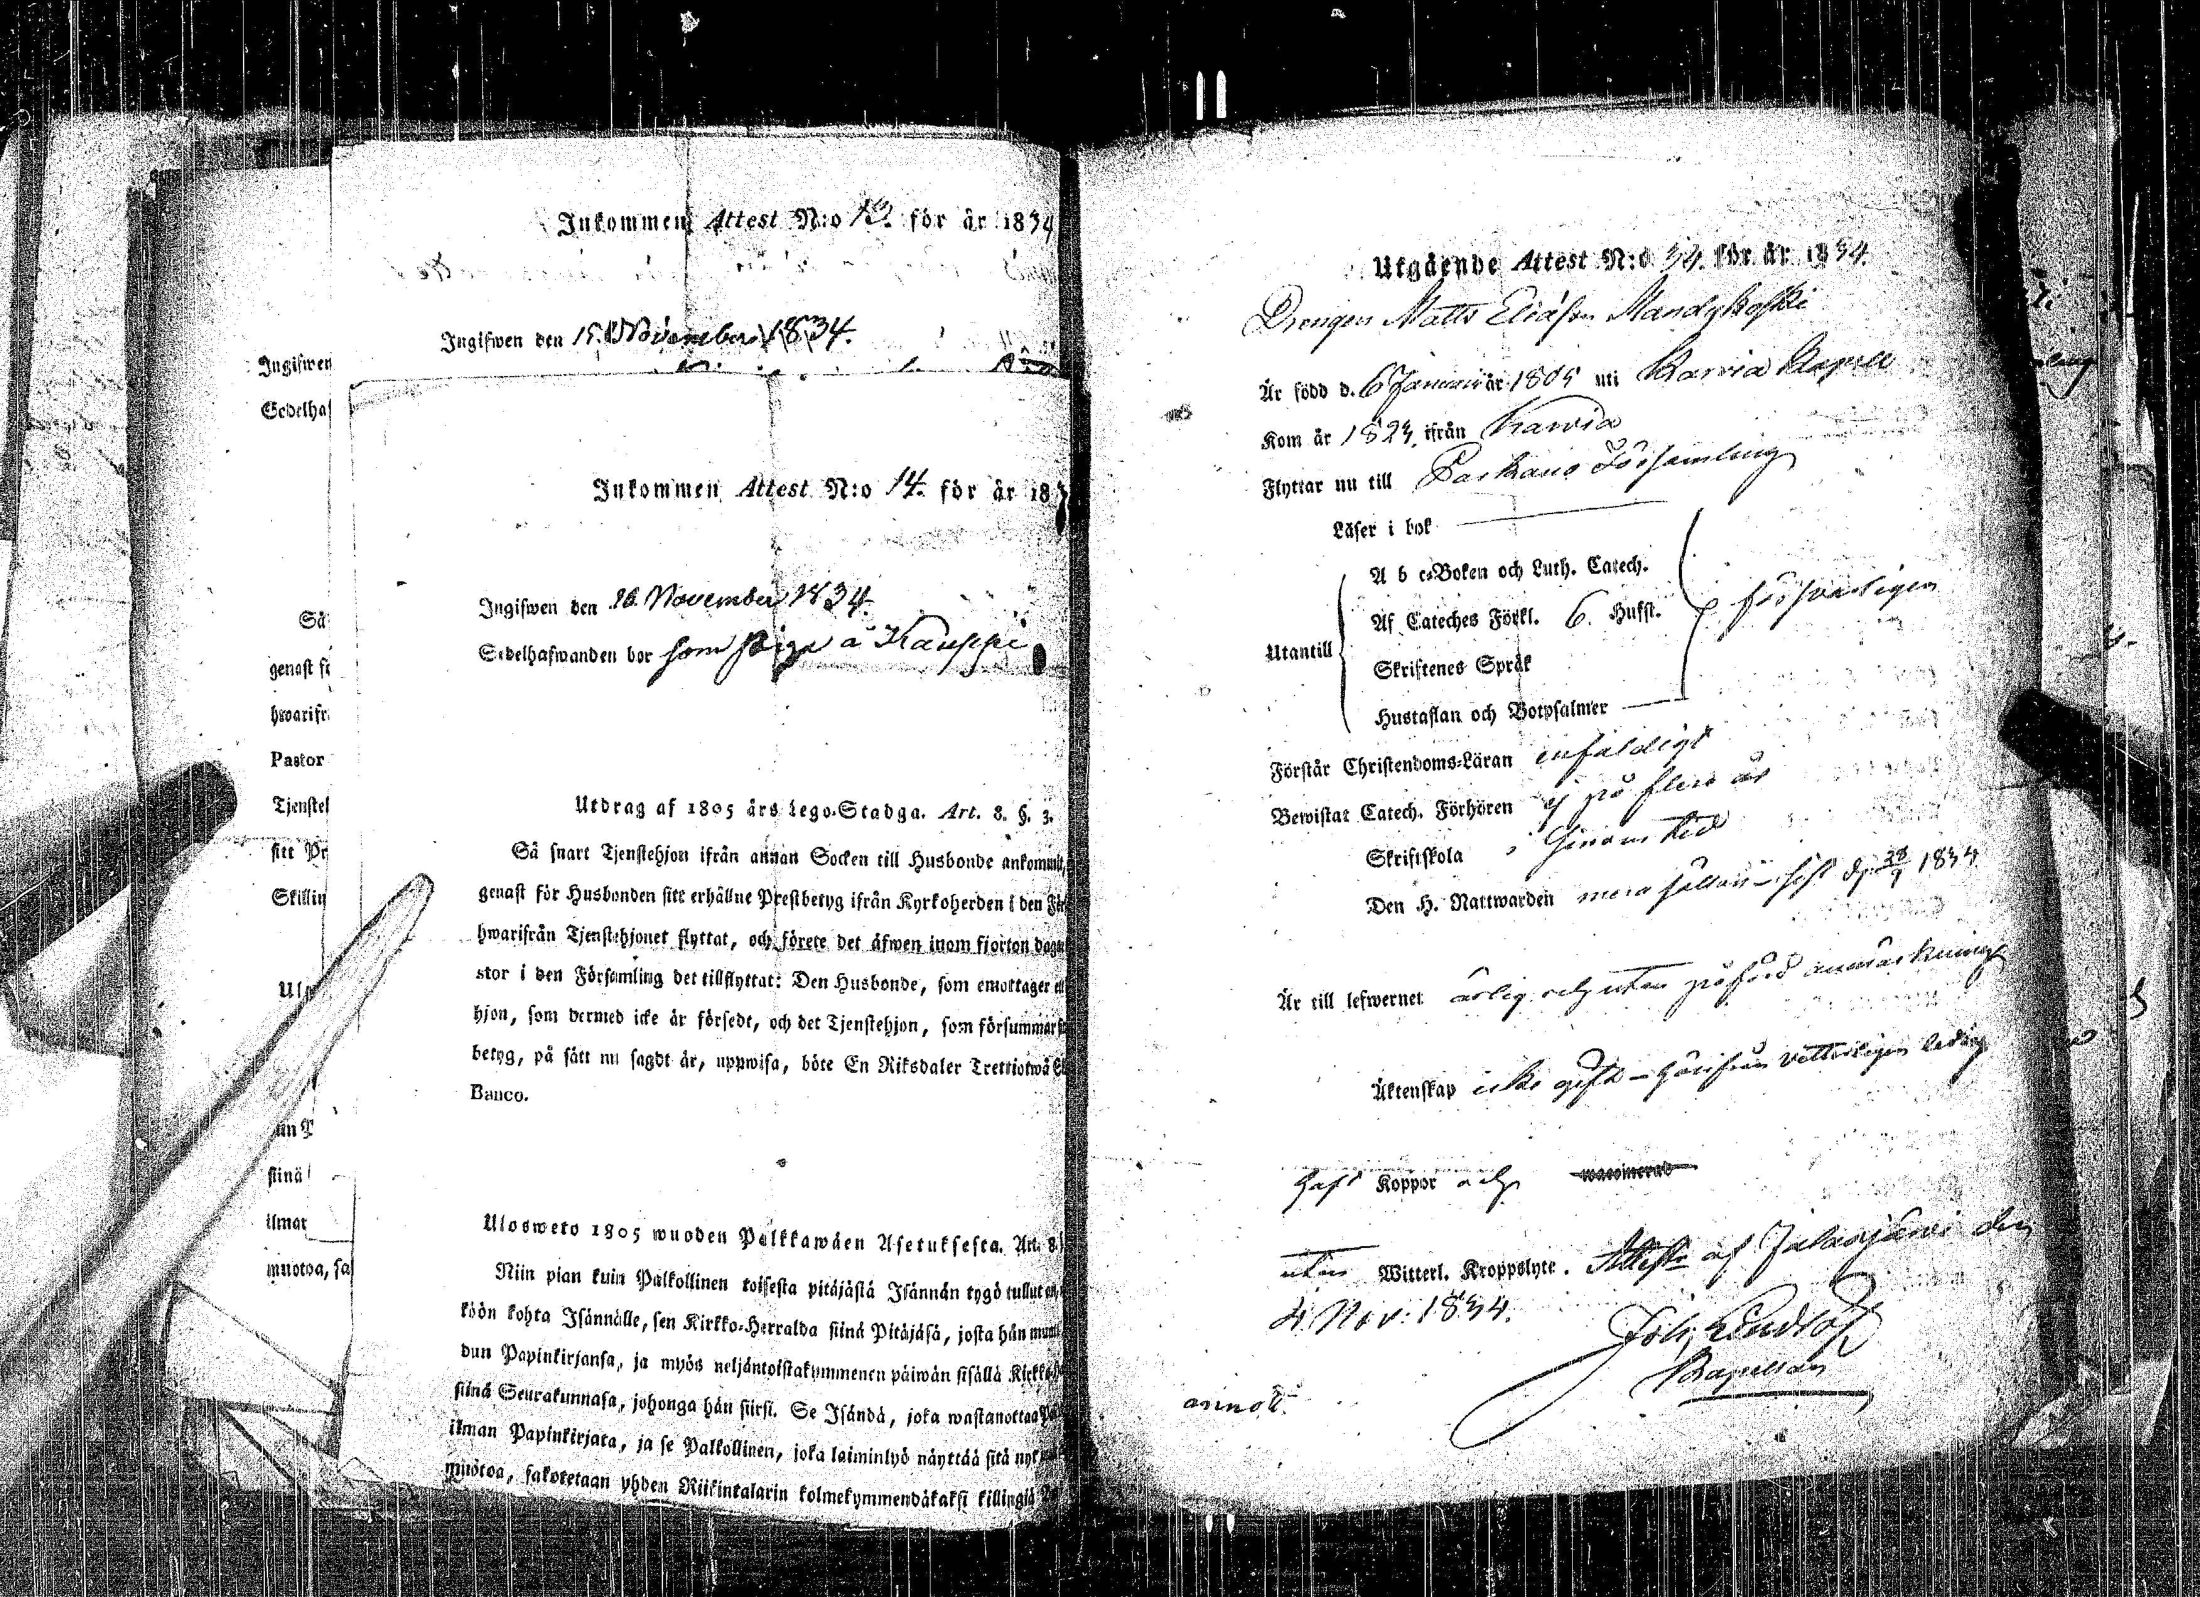 Inkommen Attest N:o 13. för år 1834
Ingifwen den 15. November 1834.
Ingifwen
Sedelhaf
Inkommen Attest N:o 14. för år 183
Ingifwen den 16. November 1834.
Sedelhafwanden bor som piga å Kauppi
Så
genast fö
hwarifr
Pastor
Tjenstel
sitt Pr
Skillin
Ulo
stinä
ilmar
muotoa, sa
Utdrag af 1805 års Lego-Stadga. Art. 8. §. 3.
Så snart Tjenstehjon ifrån annan Socken till Husbonde ankommit,
genast för Husbonden sitt erhållne Prestbetyg ifrån Kyrkoherden i den För
hwarifrån Tjenstehjonet flyttat, och förete det äfwen inom fjorton daga
stor i den Församling det tillflyttat: Den Husbonde, som emottager
hjon, som dermed icke är försedt, och det Tjenstehjon, som försummar
betyg, på sätt nu sagdt är, uppwisa, böte En Riksdaler Trettiotwå
Banco.
Ulosweto 1805 wuoden Palkkawäen Asetuksesta. Art. 8
Niin pian kuin Palkollinen toisesta pitäjästä Isännän tygö tullut
köön kohta Isännälle, sen Kirkko-Herralda siinä Pitäjäsä, josta hän
dun Papinkirjansa, ja myös neljäntoistakymmenen päiwän sisällä
siinä Seurakunnasa, johonga hän siirsi. Se Isändä, joka wastanottaa
ilman Papinkirjata, ja se Palkollinen, joka laiminlyö näyttää sitä
muotoa, sakotetaan yhden Riikinkalarin kolmekymmendäkaksi killingiä
Utgående Attest N:o 34. för år 1834.
Drengen Matts Eliasson Mandykoski
Är född d. 6 Januari år 1805 uti Karvia Capell
Kom år 1823, ifrån Karvia
Flyttar nu till Parkano Församling
Läser i bok
A b c-Boken och Luth. Catech.
Af Cateches Förkl. 6. Hufst. försvarligen
Utantill
Skriftenes Språk
Hustaflan och Botpsalmer
Förstår Christendoms-Läran enfaldigt
Bewistat Catech. Förhören ej på flera år
Skriftskola i sinom tid
Den H. Nattwarden mera sällan - sist d. 28/9 1834
Är till lefwernet ärlig och utan påförd anmärkning
Äktenskap icke gift - härifrån vetterligen ledig
haft Koppor och waccinerad
utan Witterl. Kroppslyte. Attest. af Jalasjärvi den
4 Nov. 1834.
Joh. Lindlöf
Kapellan
annot.